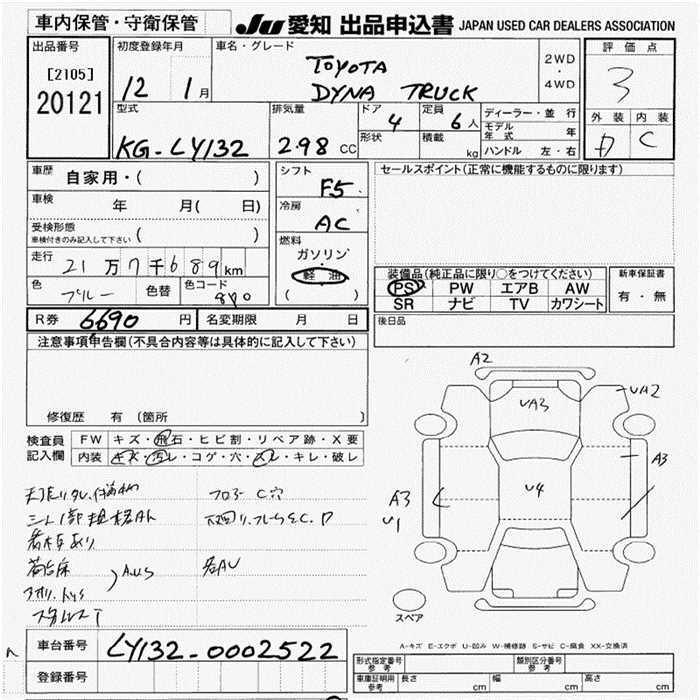 車内保管・守衛保管
JU 愛知 出品申込書 JAPAN USED CAR DEALERS ASSOCIATION
出品番号
[2105]
20121
初度登録年月
12 1月
車名・グレード
TOYOTA
DYNA TRUCK
2WD
・
4WD
評価点
3
外装 内装
A C
型式
KG-LY132
排気量
2.98 CC
ドア
4
形状
定員
6人
積載
kg
ディーラー・並行
モデル年式 年
ハンドル 左・右
車歴
自家用・( )
車検
年 月( 日)
受検形態
車検付きのみ記入して下さい ( )
走行
21万7千689km
色
ブルー
色替
色コード
8P0
シフト
F5
冷房
AC
燃料
ガソリン
軽油
( )
セールスポイント(正常に機能するものに限ります)
装備品(純正品に限り○をつけてください)
PS PW エアB AW
SR ナビ TV カワシート
新車保証書
有・無
R券 6690円
名変期限 月 日
後日品
注意事項申告欄(不具合内容等は具体的に記入して下さい)
修復歴 有 (箇所 )
検査員
記入欄
FW キズ・飛石・ヒビ割・リペア跡・X要
内装 キズ・汚レ・コゲ・穴・スレ・キレ・破レ
フロアーC穴
A.U.S
A2
UA3
UA2
A3
U4
A3
U1
スペア
A-キズ E-エクボ U-凹み W-補修跡 S-サビ C-腐食 XX-交換済
車台番号
LY132-0002522
登録番号
形式指定番号
参考
類別区分番号
参考
車庫証明用
参考
長さ cm
幅 cm
高さ cm